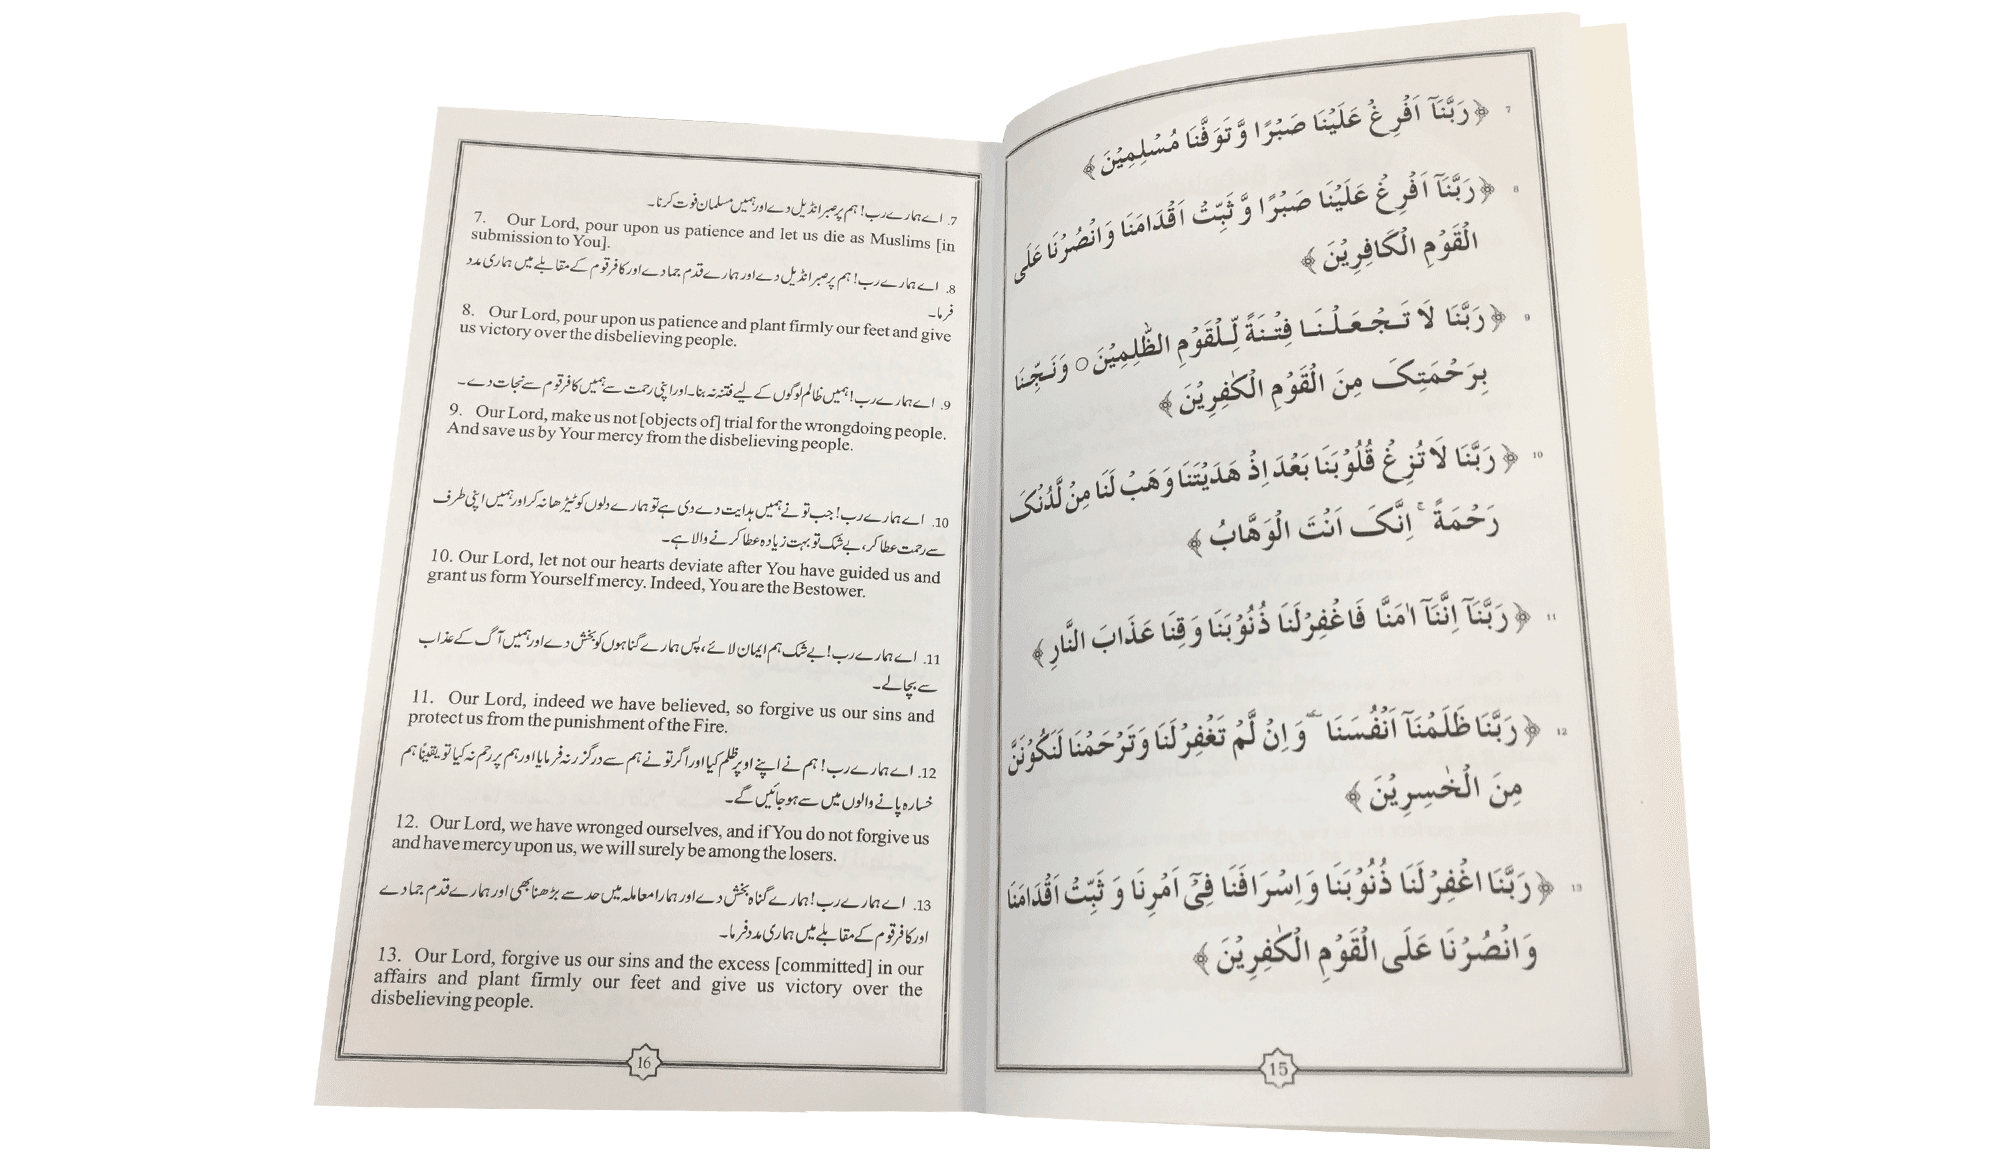 7 ﴿رَبَّنَآ اَفْرِغْ عَلَيْنَا صَبْرًا وَّ تَوَفَّنَا مُسْلِمِيْنَ﴾
8 ﴿رَبَّنَآ اَفْرِغْ عَلَيْنَا صَبْرًا وَّ ثَبِّتْ اَقْدَامَنَا وَانْصُرْنَا عَلَى
الْقَوْمِ الْكَافِرِيْنَ﴾
9 ﴿رَبَّنَا لَا تَجْعَلْنَا فِتْنَةً لِّلْقَوْمِ الظّٰلِمِيْنَ ○ وَنَجِّنَا
بِرَحْمَتِکَ مِنَ الْقَوْمِ الْكٰفِرِيْنَ﴾
10 ﴿رَبَّنَا لَا تُزِغْ قُلُوْبَنَا بَعْدَ اِذْ هَدَيْتَنَا وَهَبْ لَنَا مِنْ لَّدُنْکَ
رَحْمَةً ۚ اِنَّکَ اَنْتَ الْوَهَّابُ﴾
11 ﴿رَبَّنَآ اِنَّنَآ اٰمَنَّا فَاغْفِرْلَنَا ذُنُوْبَنَا وَقِنَا عَذَابَ النَّارِ﴾
12 ﴿رَبَّنَا ظَلَمْنَآ اَنْفُسَنَا ٚ وَاِنْ لَّمْ تَغْفِرْلَنَا وَتَرْحَمْنَا لَنَكُوْنَنَّ
مِنَ الْخٰسِرِيْنَ﴾
13 ﴿رَبَّنَا اغْفِرْلَنَا ذُنُوْبَنَا وَاِسْرَافَنَا فِیْٓ اَمْرِنَا وَ ثَبِّتْ اَقْدَامَنَا
وَانْصُرْنَا عَلَى الْقَوْمِ الْكٰفِرِيْنَ﴾
15
7. اے ہمارے رب! ہم پر صبر انڈیل دے اور ہمیں مسلمان فوت کرنا۔
7. Our Lord, pour upon us patience and let us die as Muslims [in
submission to You].
8. اے ہمارے رب! ہم پر صبر انڈیل دے اور ہمارے قدم جما دے اور کافر قوم کے مقابلے میں ہماری مدد
فرما۔
8. Our Lord, pour upon us patience and plant firmly our feet and give
us victory over the disbelieving people.
9. اے ہمارے رب! ہمیں ظالم لوگوں کے لیے فتنہ نہ بنا۔ اور اپنی رحمت سے ہمیں کافر قوم سے نجات دے۔
9. Our Lord, make us not [objects of] trial for the wrongdoing people.
And save us by Your mercy from the disbelieving people.
10. اے ہمارے رب! جب تو نے ہمیں ہدایت دے دی ہے تو ہمارے دلوں کو ٹیڑھا نہ کر اور ہمیں اپنی طرف
سے رحمت عطا کر، بے شک تو بہت زیادہ عطا کرنے والا ہے۔
10. Our Lord, let not our hearts deviate after You have guided us and
grant us form Yourself mercy. Indeed, You are the Bestower.
11. اے ہمارے رب! بے شک ہم ایمان لائے، پس ہمارے گناہوں کو بخش دے اور ہمیں آگ کے عذاب
سے بچا لے۔
11. Our Lord, indeed we have believed, so forgive us our sins and
protect us from the punishment of the Fire.
12. اے ہمارے رب! ہم نے اپنے اوپر ظلم کیا اور اگر تو نے ہم سے درگزر نہ فرمایا اور ہم پر رحم نہ کیا تو یقینًا ہم
خسارہ پانے والوں میں سے ہو جائیں گے۔
12. Our Lord, we have wronged ourselves, and if You do not forgive us
and have mercy upon us, we will surely be among the losers.
13. اے ہمارے رب! ہمارے گناہ بخش دے اور ہمارا معاملہ میں حد سے بڑھنا بھی اور ہمارے قدم جما دے
اور کافر قوم کے مقابلے میں ہماری مدد فرما۔
13. Our Lord, forgive us our sins and the excess [committed] in our
affairs and plant firmly our feet and give us victory over the
disbelieving people.
16